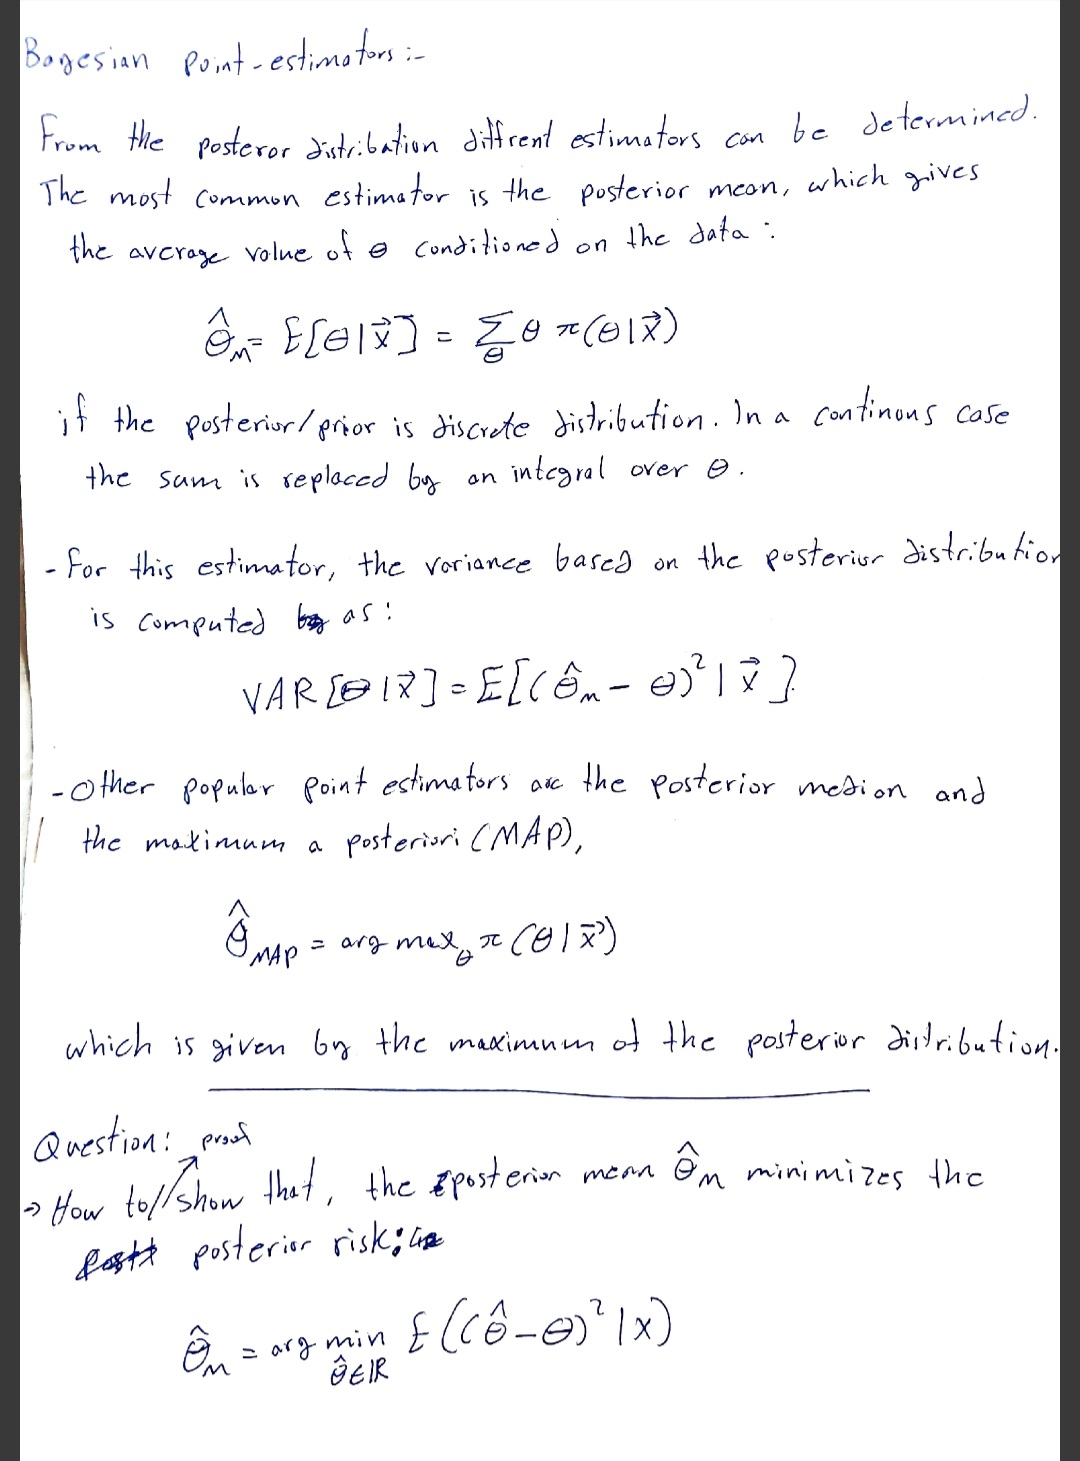 Bayesian Point-estimators :-
From the posteror distribation diffrent estimators can be determined.
The most common estimator is the posterior mean, which gives
the average value of θ conditioned on the data :
θ̂_M = E[θ|x⃗] = Σ_θ θ π(θ|x⃗)
if the posterior/prior is discrete distribution. In a continous case
the sum is replaced by an integral over θ.
- For this estimator, the variance based on the posterior distribution
is computed as :
VAR[θ|x⃗] = E[(θ̂_m - θ)²|x⃗].
- Other popular point estimators are the posterior median and
the maximum a posteriori (MAP),
θ̂_MAP = arg max_θ π(θ|x⃗)
which is given by the maximum of the posterior distribution.
Question: proof
→ How to//show that, the posterior mean θ̂_m minimizes the
posterior risk:
θ̂_m = arg min_{θ̂∈ℝ} E((θ̂-θ)²|x)